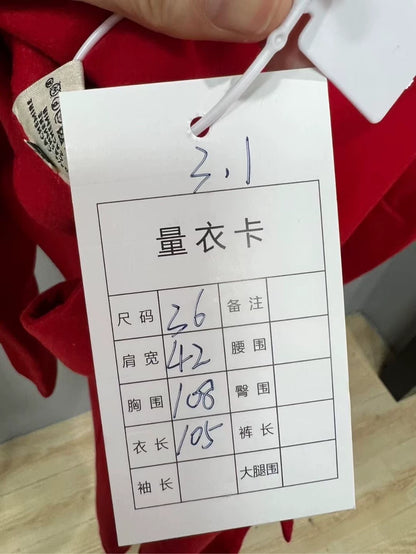 3.1
量衣卡
尺码 36 备注
肩宽 42 腰围
胸围 108 臀围
衣长 105 裤长
袖长 大腿围